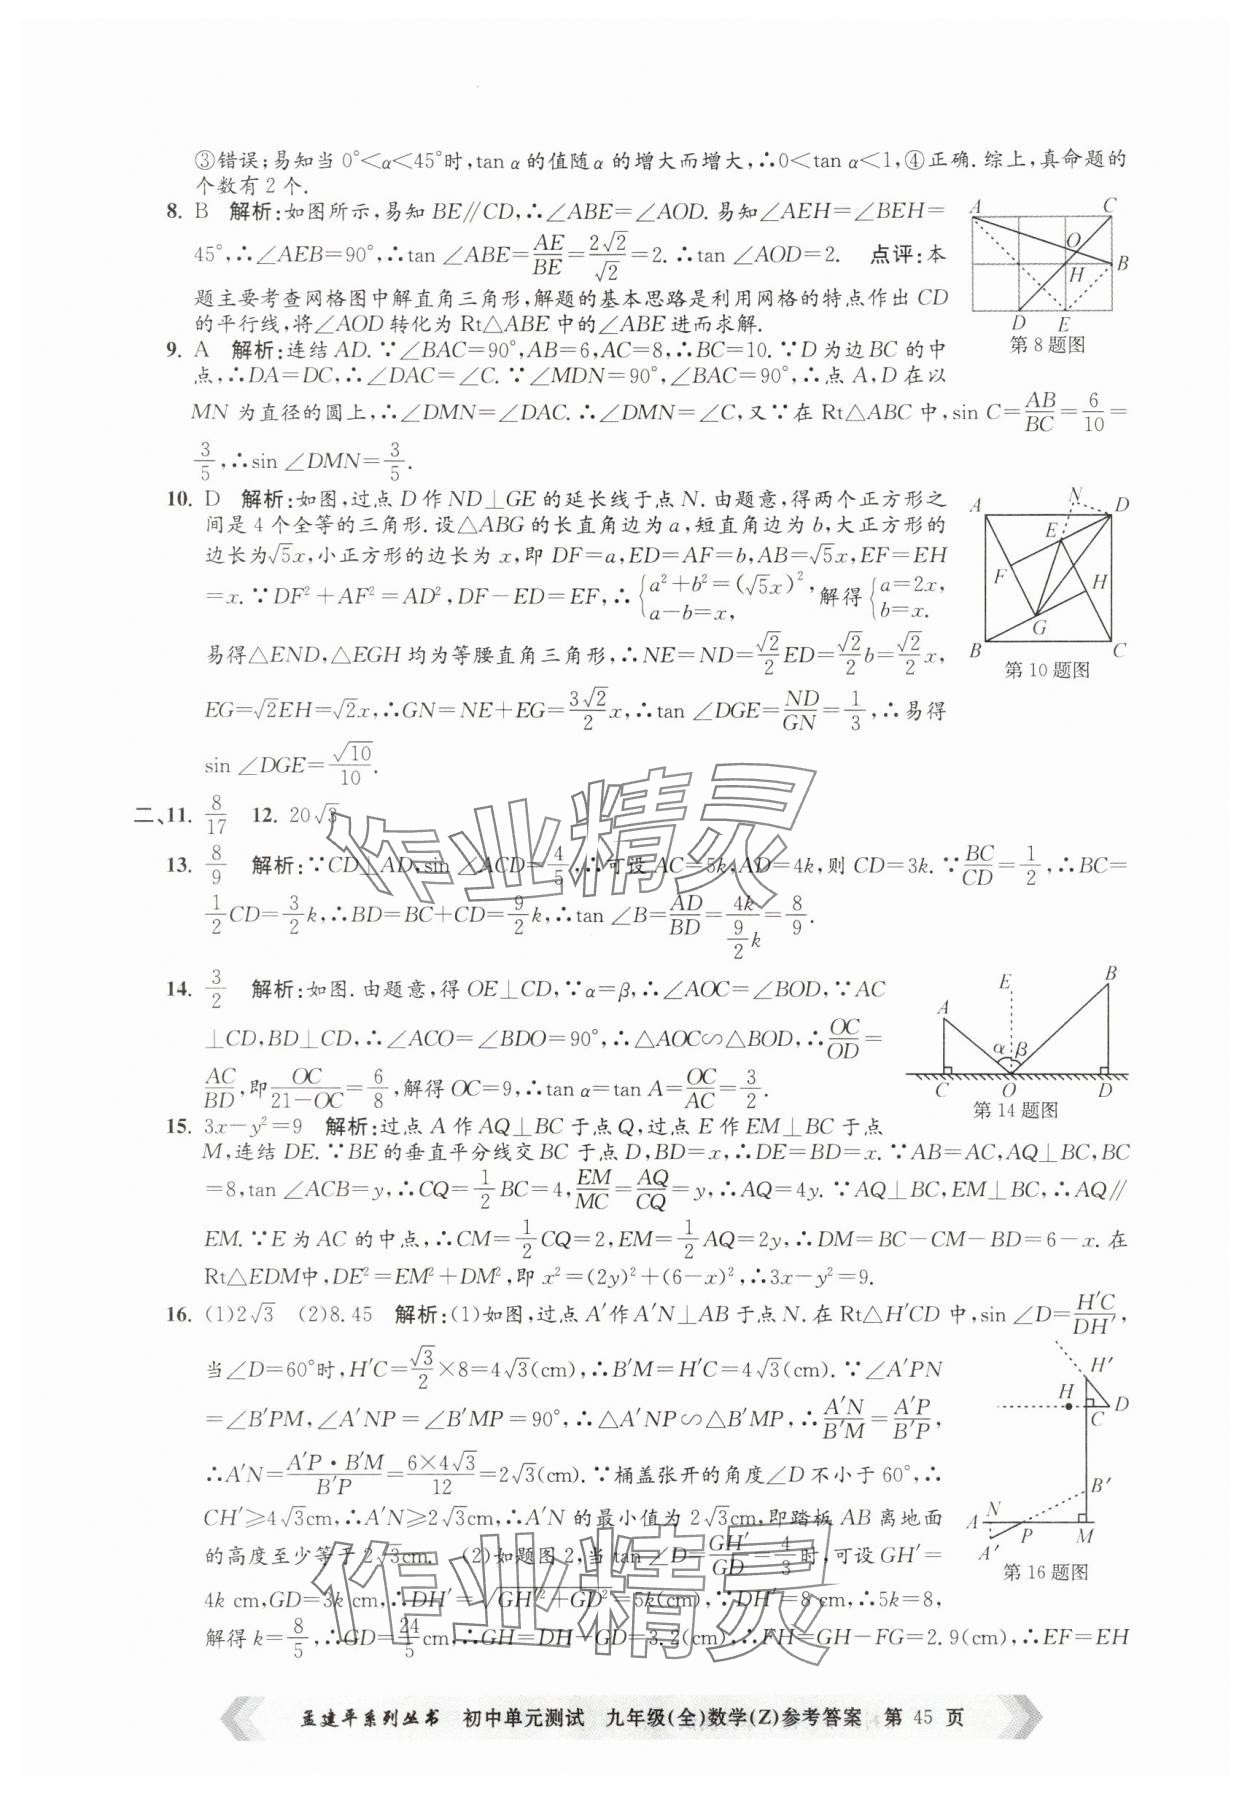 ③错误;易知当 0°<α<45°时,tan α 的值随α 的增大而增大,∴0<tan α<1,④正确.综上,真命题的
个数有 2 个.
8. B 解析:如图所示,易知 BE∥CD,∴∠ABE=∠AOD.易知∠AEH=∠BEH=
45°,∴∠AEB=90°,∴tan ∠ABE=AE/BE=2√2/√2=2.∴tan ∠AOD=2. 点评:本
题主要考查网格图中解直角三角形,解题的基本思路是利用网格的特点作出 CD
的平行线,将∠AOD 转化为 Rt△ABE 中的∠ABE 进而求解.
A C O B H D E
第 8 题图
9. A 解析:连结 AD.∵∠BAC=90°,AB=6,AC=8,∴BC=10.∵D 为边 BC 的中
点,∴DA=DC,∴∠DAC=∠C.∵∠MDN=90°,∠BAC=90°,∴点 A,D 在以
MN 为直径的圆上,∴∠DMN=∠DAC.∴∠DMN=∠C,又∵在 Rt△ABC 中,sin C=AB/BC=6/10=
3/5,∴sin ∠DMN=3/5.
10. D 解析:如图,过点 D 作 ND⊥GE 的延长线于点 N.由题意,得两个正方形之
间是 4 个全等的三角形.设△ABG 的长直角边为 a,短直角边为 b,大正方形的
边长为√5x,小正方形的边长为 x,即 DF=a,ED=AF=b,AB=√5x,EF=EH
=x.∵DF²+AF²=AD²,DF-ED=EF,∴{a²+b²=(√5x)², a-b=x, 解得{a=2x, b=x.
易得△END,△EGH 均为等腰直角三角形,∴NE=ND=√2/2ED=√2/2b=√2/2x,
EG=√2EH=√2x,∴GN=NE+EG=3√2/2x,∴tan ∠DGE=ND/GN=1/3,∴易得
sin ∠DGE=√10/10.
A N D E F H G B C
第 10 题图
二、11. 8/17 12. 20√3
13. 8/9 解析:∵CD⊥AD,sin ∠ACD=4/5,∴可设 AC=5k,AD=4k,则 CD=3k.∵BC/CD=1/2,∴BC=
1/2CD=3/2k,∴BD=BC+CD=9/2k,∴tan ∠B=AD/BD=4k/(9/2k)=8/9.
14. 3/2 解析:如图.由题意,得 OE⊥CD,∵α=β,∴∠AOC=∠BOD,∵AC
⊥CD,BD⊥CD,∴∠ACO=∠BDO=90°,∴△AOC∽△BOD,∴OC/OD=
AC/BD,即OC/(21-OC)=6/8,解得 OC=9,∴tan α=tan A=OC/AC=3/2.
E B A α β C O D
第 14 题图
15. 3x-y²=9 解析:过点 A 作 AQ⊥BC 于点 Q,过点 E 作 EM⊥BC 于点
M,连结 DE.∵BE 的垂直平分线交 BC 于点 D,BD=x,∴DE=BD=x.∵AB=AC,AQ⊥BC,BC
=8,tan ∠ACB=y,∴CQ=1/2BC=4,EM/MC=AQ/CQ=y,∴AQ=4y.∵AQ⊥BC,EM⊥BC,∴AQ∥
EM.∵E 为 AC 的中点,∴CM=1/2CQ=2,EM=1/2AQ=2y,∴DM=BC-CM-BD=6-x.在
Rt△EDM中,DE²=EM²+DM²,即 x²=(2y)²+(6-x)²,∴3x-y²=9.
16. (1)2√3 (2)8.45 解析:(1)如图,过点 A′作 A′N⊥AB 于点 N.在 Rt△H′CD 中,sin ∠D=H′C/DH′,
当∠D=60°时,H′C=√3/2×8=4√3(cm),∴B′M=H′C=4√3(cm).∵∠A′PN
=∠B′PM,∠A′NP=∠B′MP=90°,∴△A′NP∽△B′MP,∴A′N/B′M=A′P/B′P,
∴A′N=A′P·B′M/B′P=6×4√3/12=2√3(cm).∵桶盖张开的角度∠D 不小于 60°,∴
CH′≥4√3cm,∴A′N≥2√3cm,∴A′N 的最小值为 2√3cm,即踏板 AB 离地面
的高度至少等于 2√3cm. (2)如题图 2,当 tan ∠D=GH′/GD=4/3时,可设 GH′=
4k cm,GD=3k cm,∴DH′=√(GH′²+GD²)=5k(cm),∵DH′=8 cm,∴5k=8,
解得 k=8/5,∴GD=24/5cm,∴GH=DH-GD=3.2(cm),∴FH=GH-FG=2.9(cm),∴EF=EH
H′ H C D B′ A N P M A′
第 16 题图
作业精灵
作业精灵
孟建平系列丛书 初中单元测试 九年级(全)数学(Z)参考答案 第 45 页